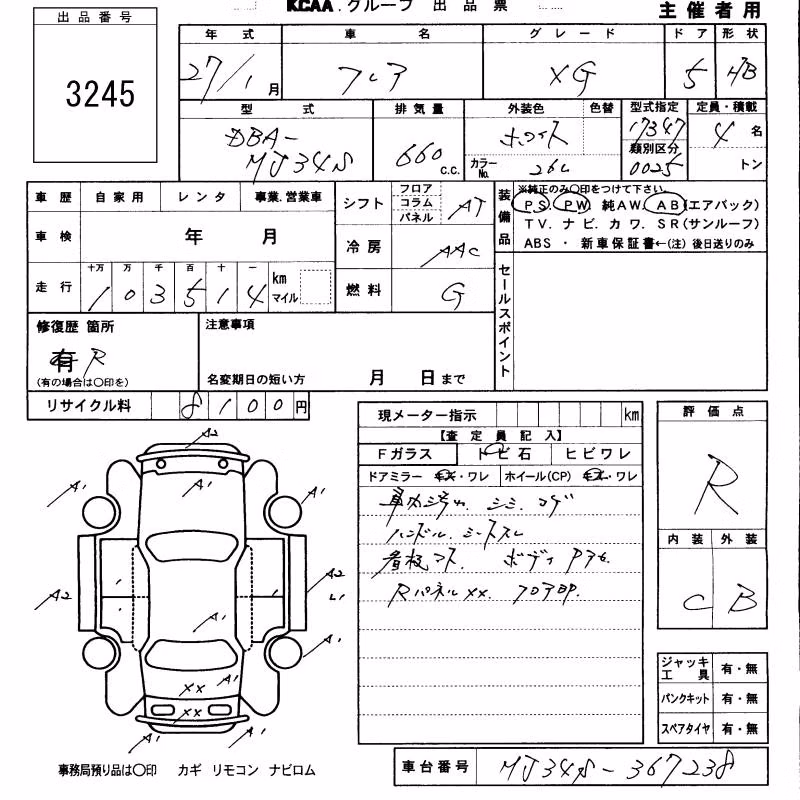 出品番号
3245
KCAA.グループ 出品票
主催者用
年式 車名 グレード ドア 形状
27/1月 フレア XG 5 HB
型式 排気量 外装色 色替 型式指定 定員・積載
DBA-
MJ34S
660 c.c.
ホワイト
カラーNo. 26U
17347
類別区分
0025
4名
トン
車歴 自家用 レンタ 事業.営業車
シフト フロア コラム パネル AT
装備品
※純正のみ〇印をつけて下さい。
PS. PW. 純AW. AB(エアバック)
TV. ナビ. カワ. SR(サンルーフ)
ABS ・ 新車保証書←(注)後日送りのみ
車検 年 月
冷房 AAC
走行 十万 万 千 百 十 一
103514 km マイル
燃料 G
セールスポイント
修復歴 箇所
有 R
(有の場合は〇印を)
注意事項
名変期日の短い方 月 日まで
リサイクル料 8100円
現メーター指示 km
【査定員記入】
Fガラス トビ石 ヒビワレ
ドアミラー キズ・ワレ ホイール(CP) キズ・ワレ
車内汚れ. シミ. コゲ
ハンドル. シートスレ
看板アト. ボディ
Rパネルxx.
評価点
R
内装 外装
C B
A2
A1
A1
A1
A2
A2
A1
A1
A1
xx
xx
A1
A1
ジャッキ工具 有・無
パンクキット 有・無
スペアタイヤ 有・無
事務局預り品は〇印 カギ リモコン ナビロム
車台番号 MJ34S-367238